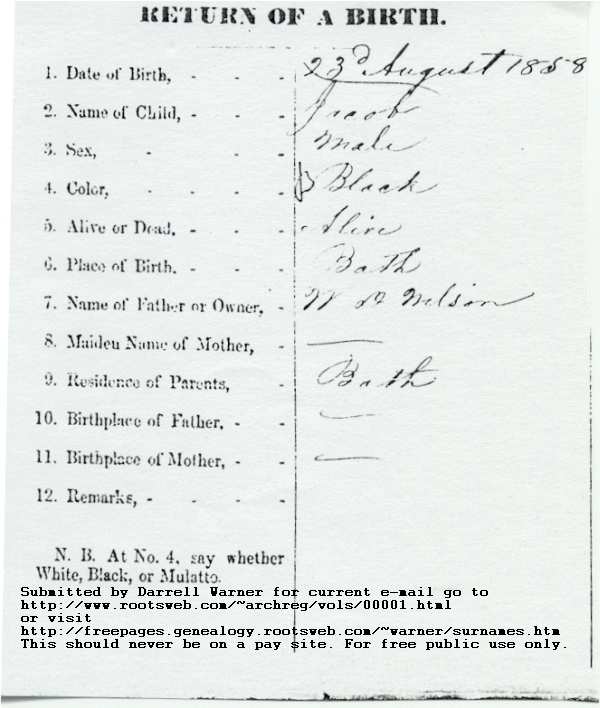 RETURN OF A BIRTH.
1. Date of Birth, - - - 23d August 1858
2. Name of Child, - - - Jacob
3. Sex, - - - Male
4. Color, - - - - Black
5. Alive or Dead. - - - Alive
6. Place of Birth. - - - Bath
7. Name of Father or Owner, - W Wilson
8. Maiden Name of Mother, - —
9. Residence of Parents, - Bath
10. Birthplace of Father, - - —
11. Birthplace of Mother, - - —
12. Remarks, - - - -
N. B. At No. 4, say whether
White, Black, or Mulatto.
Submitted by Darrell Warner for current e-mail go to
http://www.rootsweb.com/~archreg/vols/00001.html
or visit
http://freepages.genealogy.rootsweb.com/~warner/surnames.htm
This should never be on a pay site. For free public use only.